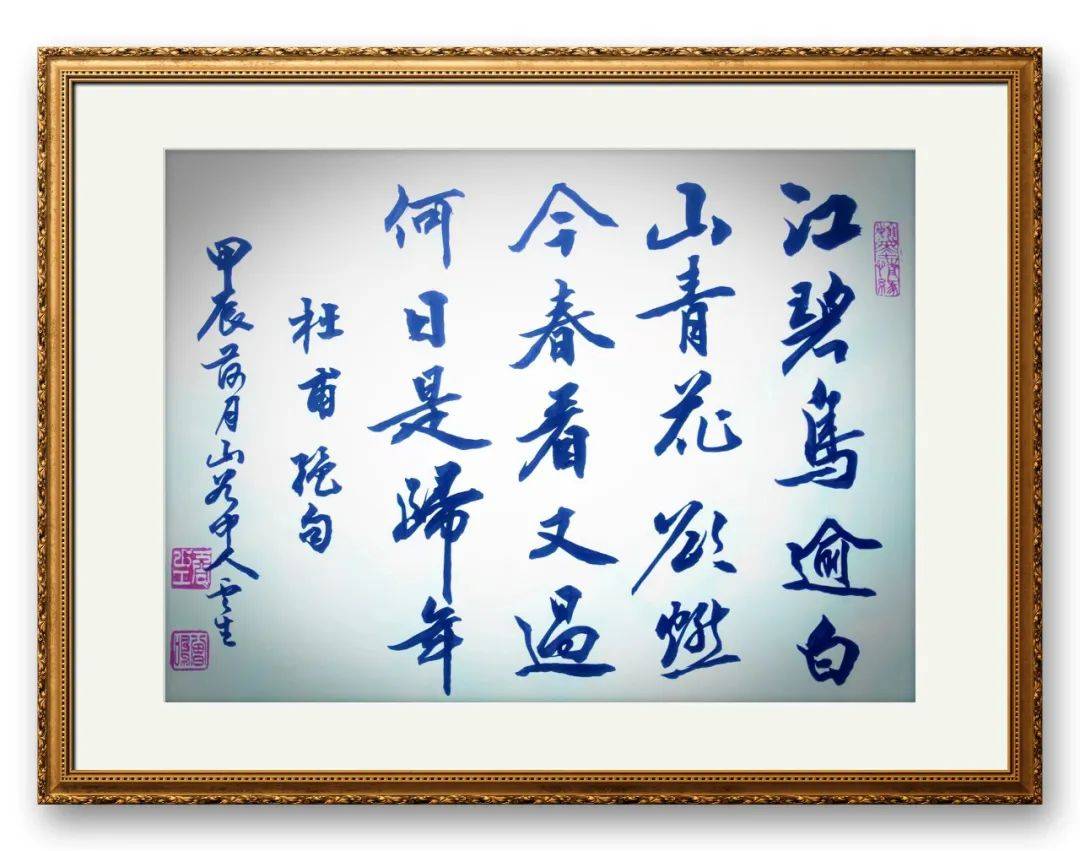 江碧鳥逾白
山青花欲燃
今春看又過
何日是歸年
杜甫绝句
甲辰荷月山谷中人雲生